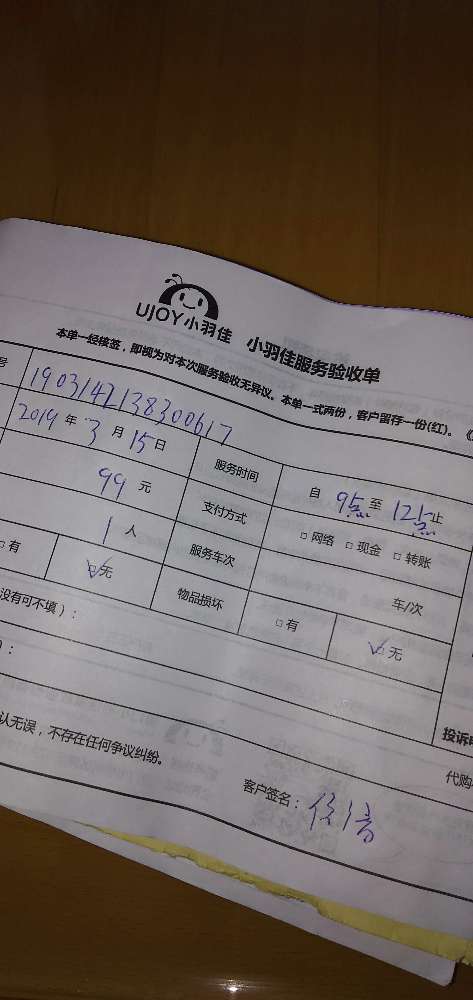 UJOY小羽佳 小羽佳服务验收单
本单一经核签，即视为对本次服务验收无异议。本单一式两份，客户留存一份(红)。
号 1903142138300617
2019 年 3 月 15 日 服务时间 自 9点 至 12点 止
99 元 支付方式 □ 网络 □ 现金 □ 转账
1 人 服务车次 车/次
□ 有 ☑ 无 物品损坏 □ 有 ☑ 无
没有可不填）：
）：
投诉
认无误，不存在任何争议纠纷。
代购
客户签名：